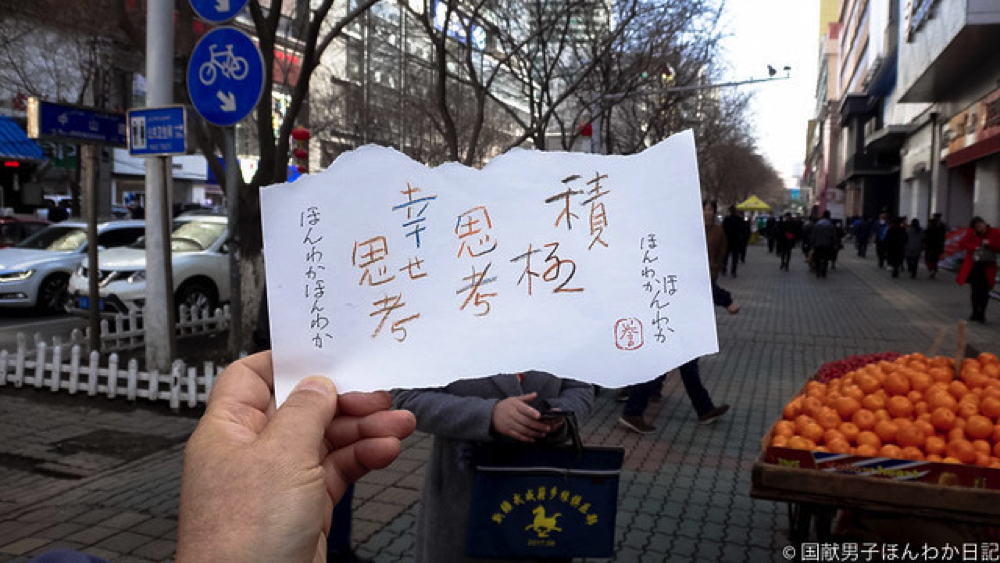 ほんわか
ほんわか
積極
思考
幸せ
思考
ほんわかほんわか
2017.08
© 国献男子ほんわか日記